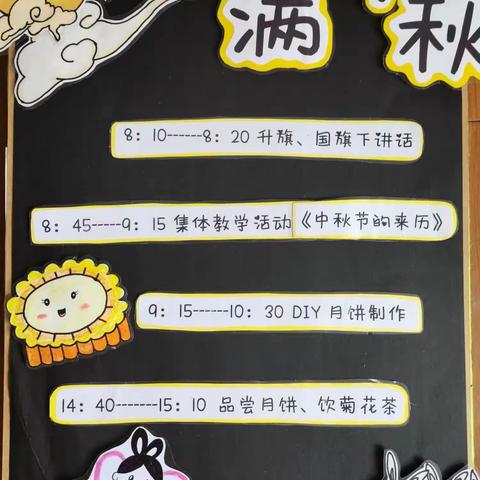 满 秋
8：10------8：20 升旗、国旗下讲话
8：45-----9：15 集体教学活动《中秋节的来历》
9：15------10：30 DIY 月饼制作
14：40-------15：10 品尝月饼、饮菊花茶